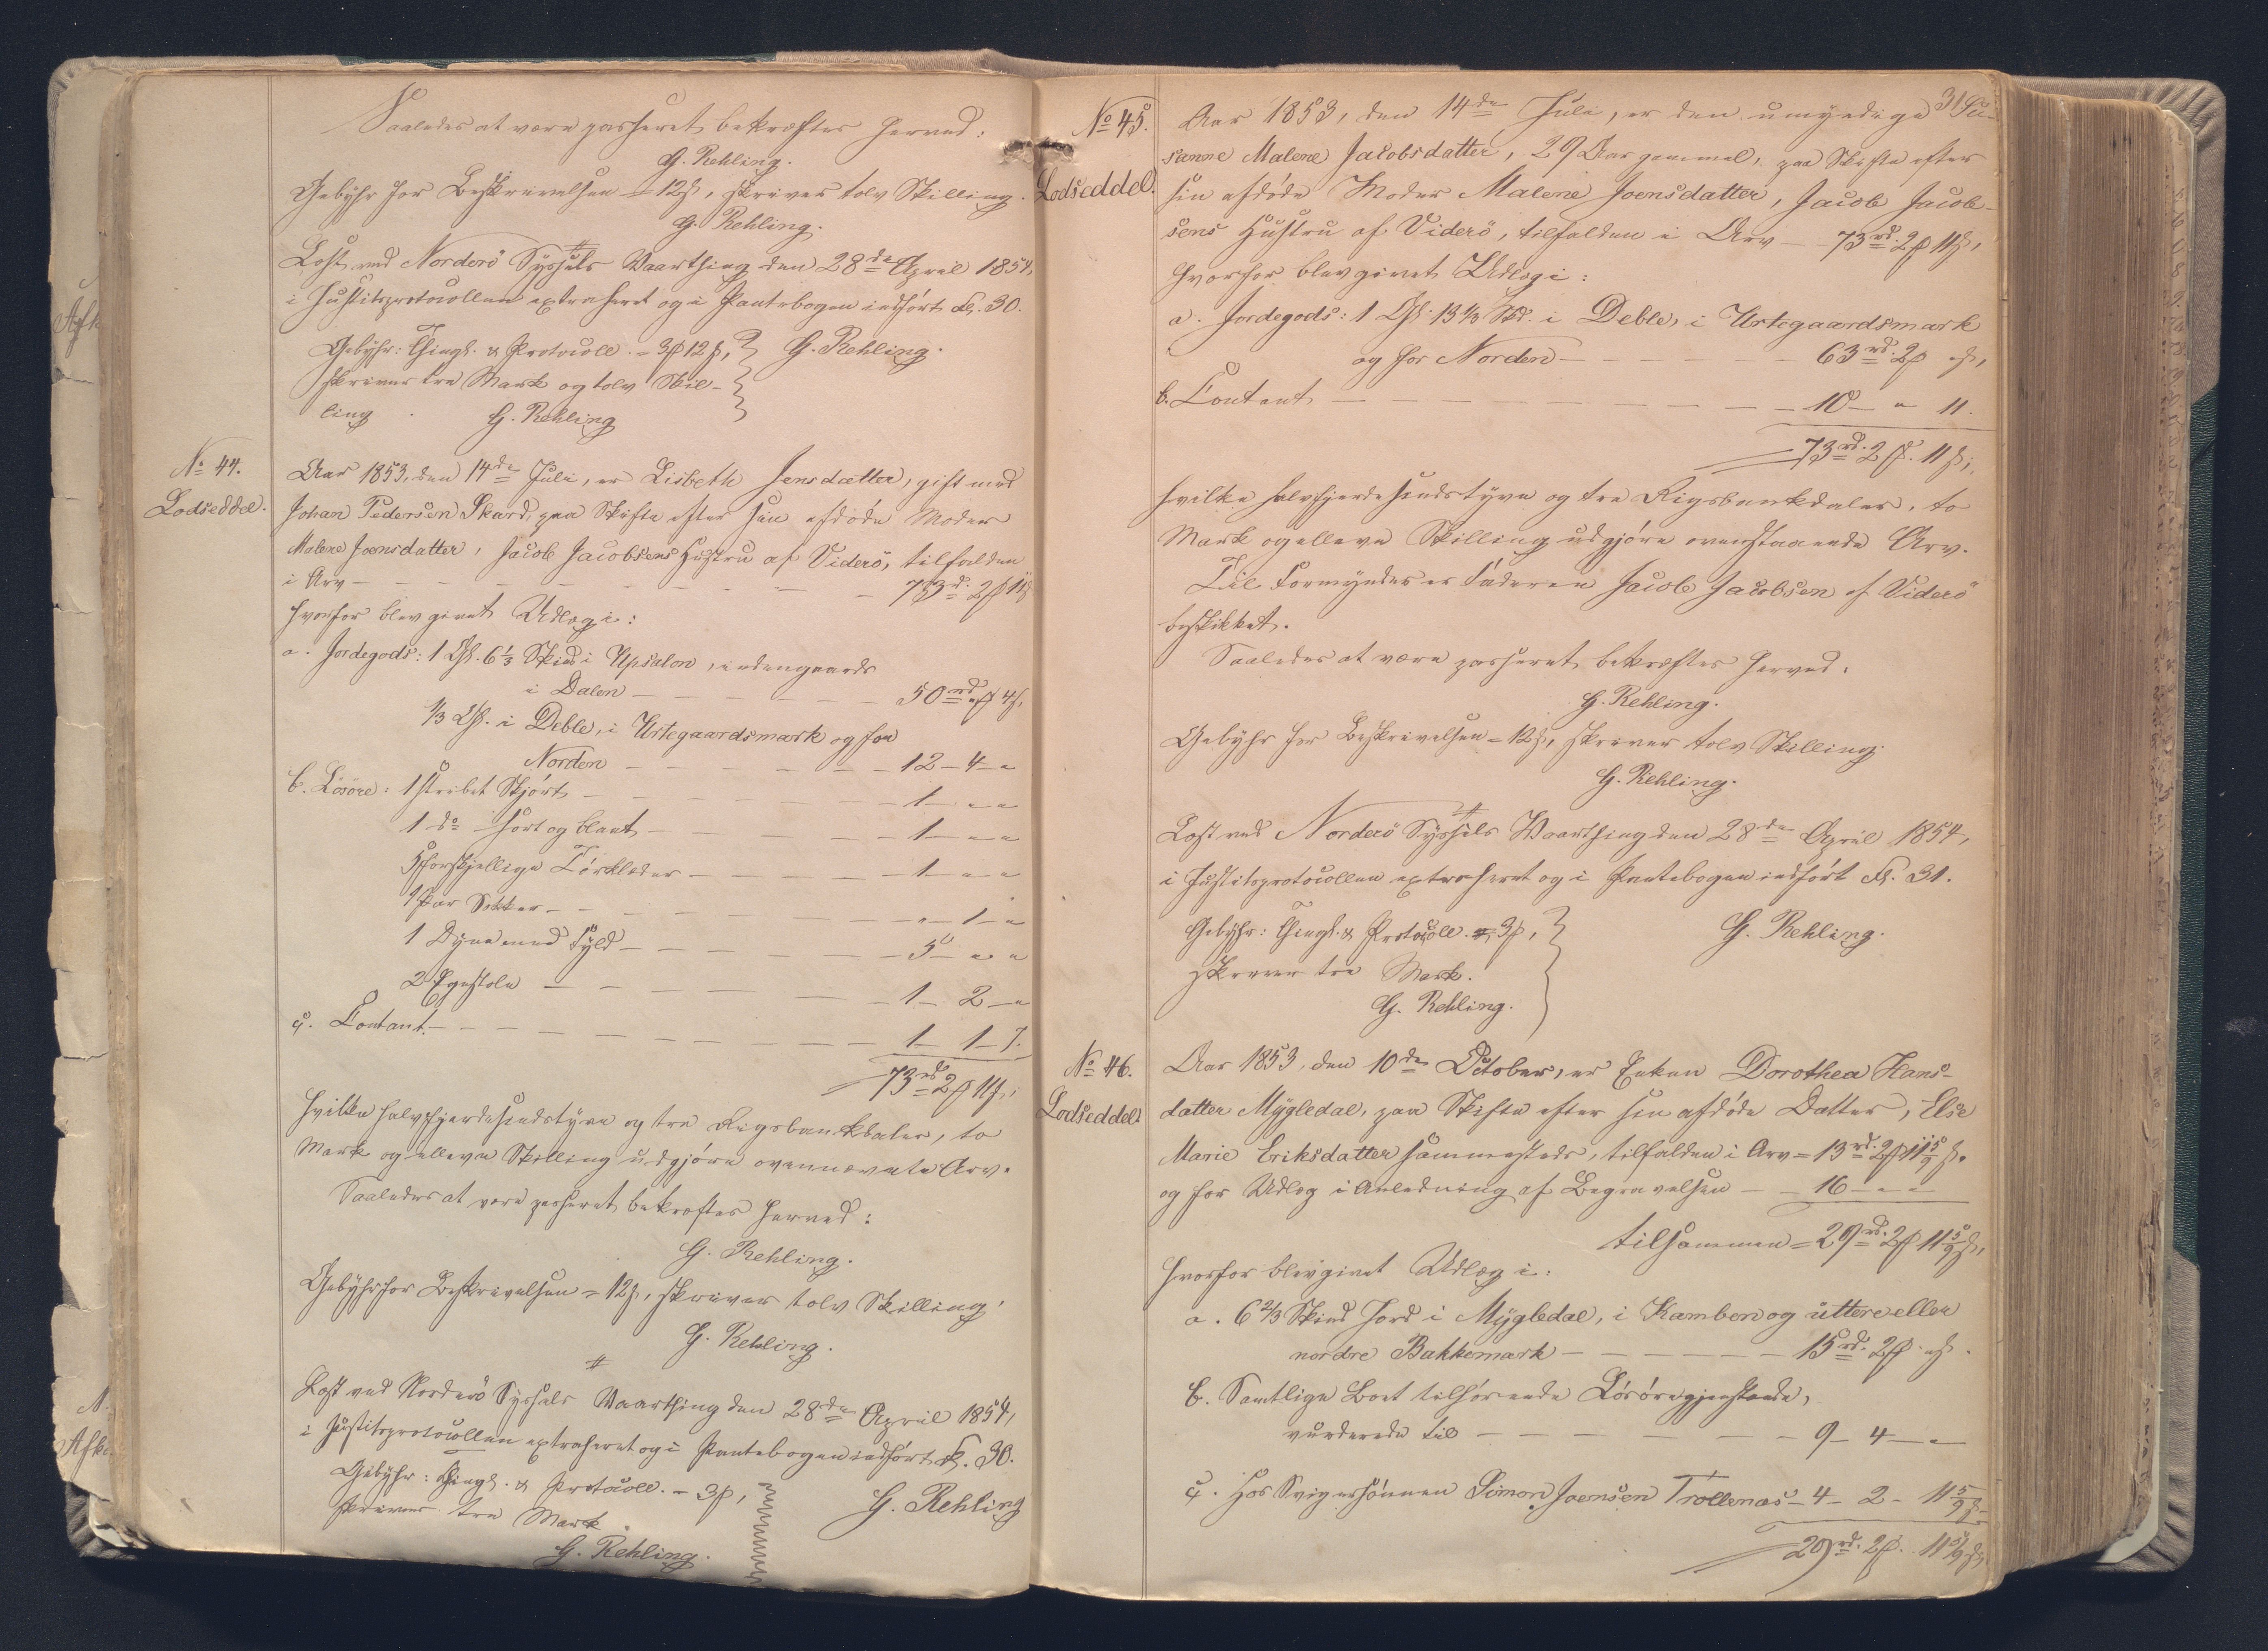 Saaledes at være passeret bekræftes herved:
G. Rehling.
Gebyhr for Beskrivelsen = 12 ß, skriver tolv Skilling.
G. Rehling.
Læst ved Norderö Syssels Vaarthing den 28de April 1854,
i Justitsprotocollen extraheret og i Pantebogen indført Fol. 30.
Gebyhr: Thingl. & Protocoll. = 3 ₻ 12 ß,
G. Rehling.
skriver tre Mark og tolv Skil-
ling
G. Rehling
No 44.
Lodseddel.
Aar 1853, den 14de Juli, er Lisbeth Jensdatter, gift med
Johan Pedersen Skard, paa Skifte efter sin afdøde Moder
Malene Joensdatter, Jacob Jacobsens Hustru af Viderö, tilfalden
i Arv — 73 rd. 2 ₻ 11 ß
hvorfor blev givet Udlæg i:
a. Jordegods: 1 Gl. 6 1/3 Skind i Upsalon, indengaards
i Dalen — 50 rd. " ₻ 4 ß,
1/3 Gl. i Deble, i Urtegaardsmark og for
Norden — 12 – 4 – "
b. Lösöre: 1 stribet Skjørt — 1 – " – "
1 do sort og blaat — 1 – " – "
5 forskjellige Tørklæder — 1 – " – "
1 Par Sokker — " – 1 – "
1 Dyne med Fyld — 5 – " – "
2 Egestole — 1 – 2 – "
c. Contant — 1 – 1 – 7.
73 rd 2 ₻ 11 ß,
hvilke halvfjerdesindstyve og tre Rigsbankdaler, to
Mark og elleve Skilling udgjøre ovennævnte Arv.
Saaledes at være passeret bekræftes herved:
G. Rehling.
Gebyhr for Beskrivelsen = 12 ß, skriver tolv Skilling.
G. Rehling.
Læst ved Norderö Syssels Vaarthing den 28de April 1854,
i Justitsprotocollen extraheret og i Pantebogen indført Fol. 30.
Gebyhr: Thingl. & Protocoll. – 3 ₻,
G. Rehling
skriver tre Mark.
G. Rehling.
31
No 45.
Lodseddel.
Aar 1853, den 14de Juli, er den umyndige Su-
sanne Malene Jacobsdatter, 29 Aar gammel, paa Skifte efter
sin afdøde Moder Malene Joensdatter, Jacob Jacob-
sens Hustru af Viderö, tilfalden i Arv — 73 rd. 2 ₻ 11 ß,
hvorfor blev givet Udlæg i:
a. Jordegods: 1 Gl. 13 1/3 Skd. i Deble, i Urtegaardsmark
og for Norden — 63 rd. 2 ₻ " ß,
b. Contant — 10 – " 11.
73 rd. 2 ₻. 11 ß;
hvilke halvfjerdesindstyve og tre Rigsbankdaler, to
Mark og elleve Skilling udgjøre ovenstaaende Arv.
Til Formynder er Faderen Jacob Jacobsen af Viderö
beskikket.
Saaledes at være passeret bekræftes herved.
G. Rehling.
Gebyhr for Beskrivelsen = 12 ß, skriver tolv Skilling.
G. Rehling.
Læst ved Norderö Syssels Vaarthing den 28de April 1854,
i Justitsprotocollen extraheret og i Pantebogen indført Fol. 31.
Gebyhr: Thingl. & Protocoll. = 3 ₻,
G. Rehling.
skriver tre Mark.
G. Rehling.
No 46.
Lodseddel.
Aar 1853, den 10de October, er Enken Dorothea Hans-
datter Mygledal, paa Skifte efter sin afdøde Datter, Else
Marie Eriksdatter sammesteds, tilfalden i Arv = 13 rd. 2 ₻ 11 5/9 ß.
og for Udlæg i Anledning af Begravelsen — 16 – " – "
tilsammen = 29 rd. 2 ₻ 11 5/9 ß,
hvorfor blev givet Udlæg i:
a. 6 2/3 Skind Jord i Mygledal, i Kamben og uttere eller
nordre Bakkemark — 15 rd. 2 ₻ " ß.
b. Samtlige Boet tilhørende Løsøregjenstande,
vurderede til — 9 – 4 – "
c. Hos Svigersønnen Simon Joensen Trollenæs – 4 – 2 – 11 5/9 ß
29 rd. 2 ₻. 11 5/9 ß,